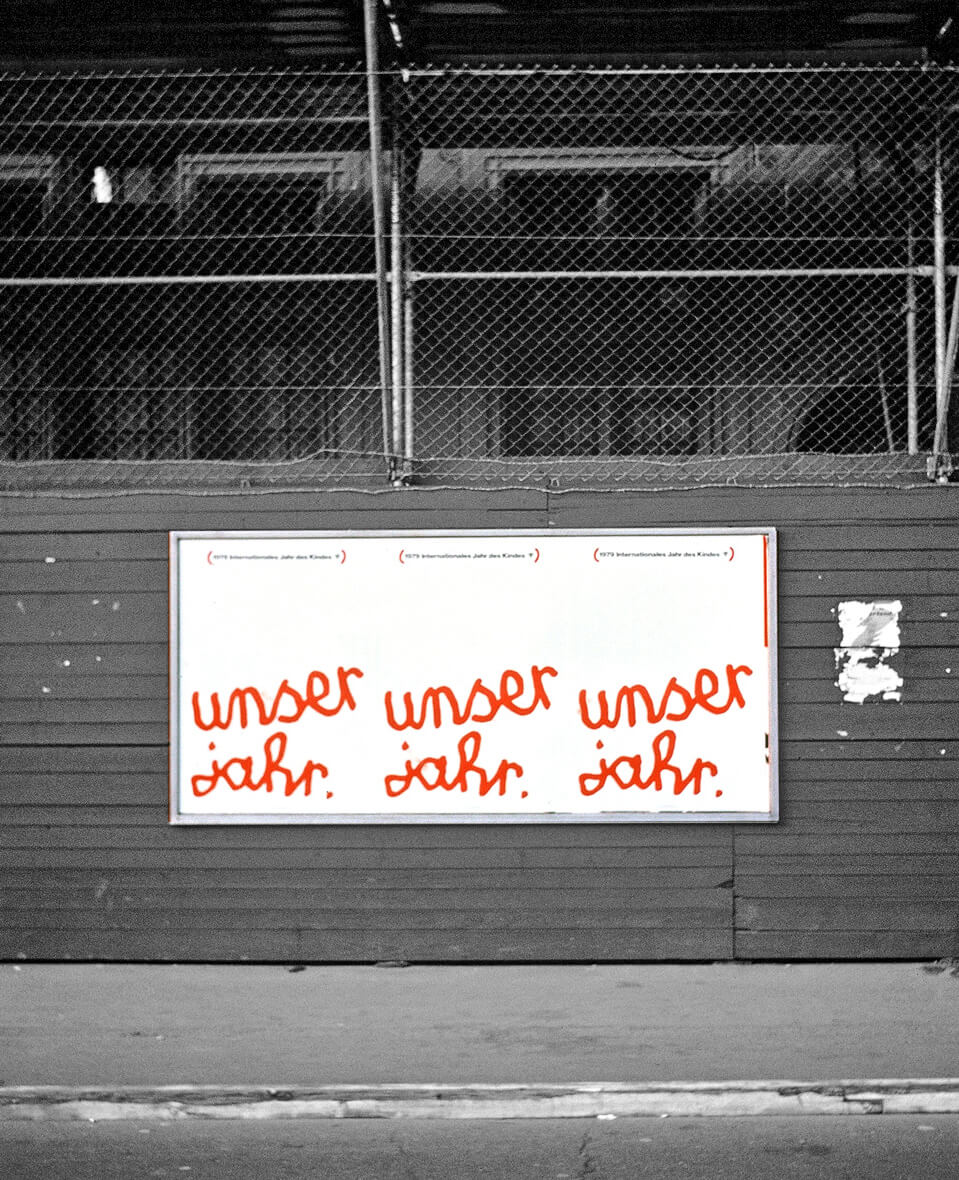 (1979 Internationales Jahr des Kindes)
(1979 Internationales Jahr des Kindes)
(1979 Internationales Jahr des Kindes)
unser unser unser
jahr. jahr. jahr.